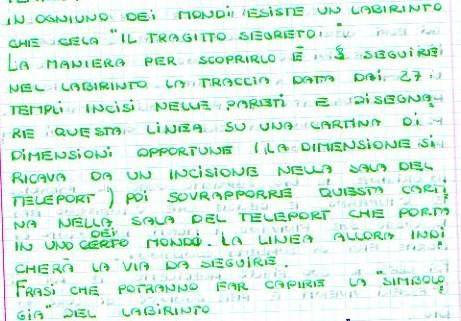 IN OGNIUNO DEI MONDI ESISTE UN LABIRINTO
CHE CELA "IL TRAGITTO SEGRETO".
LA MANIERA PER SCOPRIRLO È SEGUIRE
NEL LABIRINTO LA TRACCIA DATA DAI 27
TEMPLI INCISI NELLE PARETI E DISEGNA
RE QUESTA LINEA SU UNA CARTINA DI
DIMENSIONI OPPORTUNE (LA DIMENSIONE SI
RICAVA DA UN INCISIONE NELLA SALA DEL
TELEPORT) POI SOVRAPPORRE QUESTA CARTI
NA NELLA SALA DEL TELEPORT CHE PORTA
IN UNO DEI MONDI. LA LINEA ALLORA INDI
CHERÀ LA VIA DA SEGUIRE.
FRASI CHE POTRANNO FAR CAPIRE LA "SIMBOLO
GIA" DEL LABIRINTO